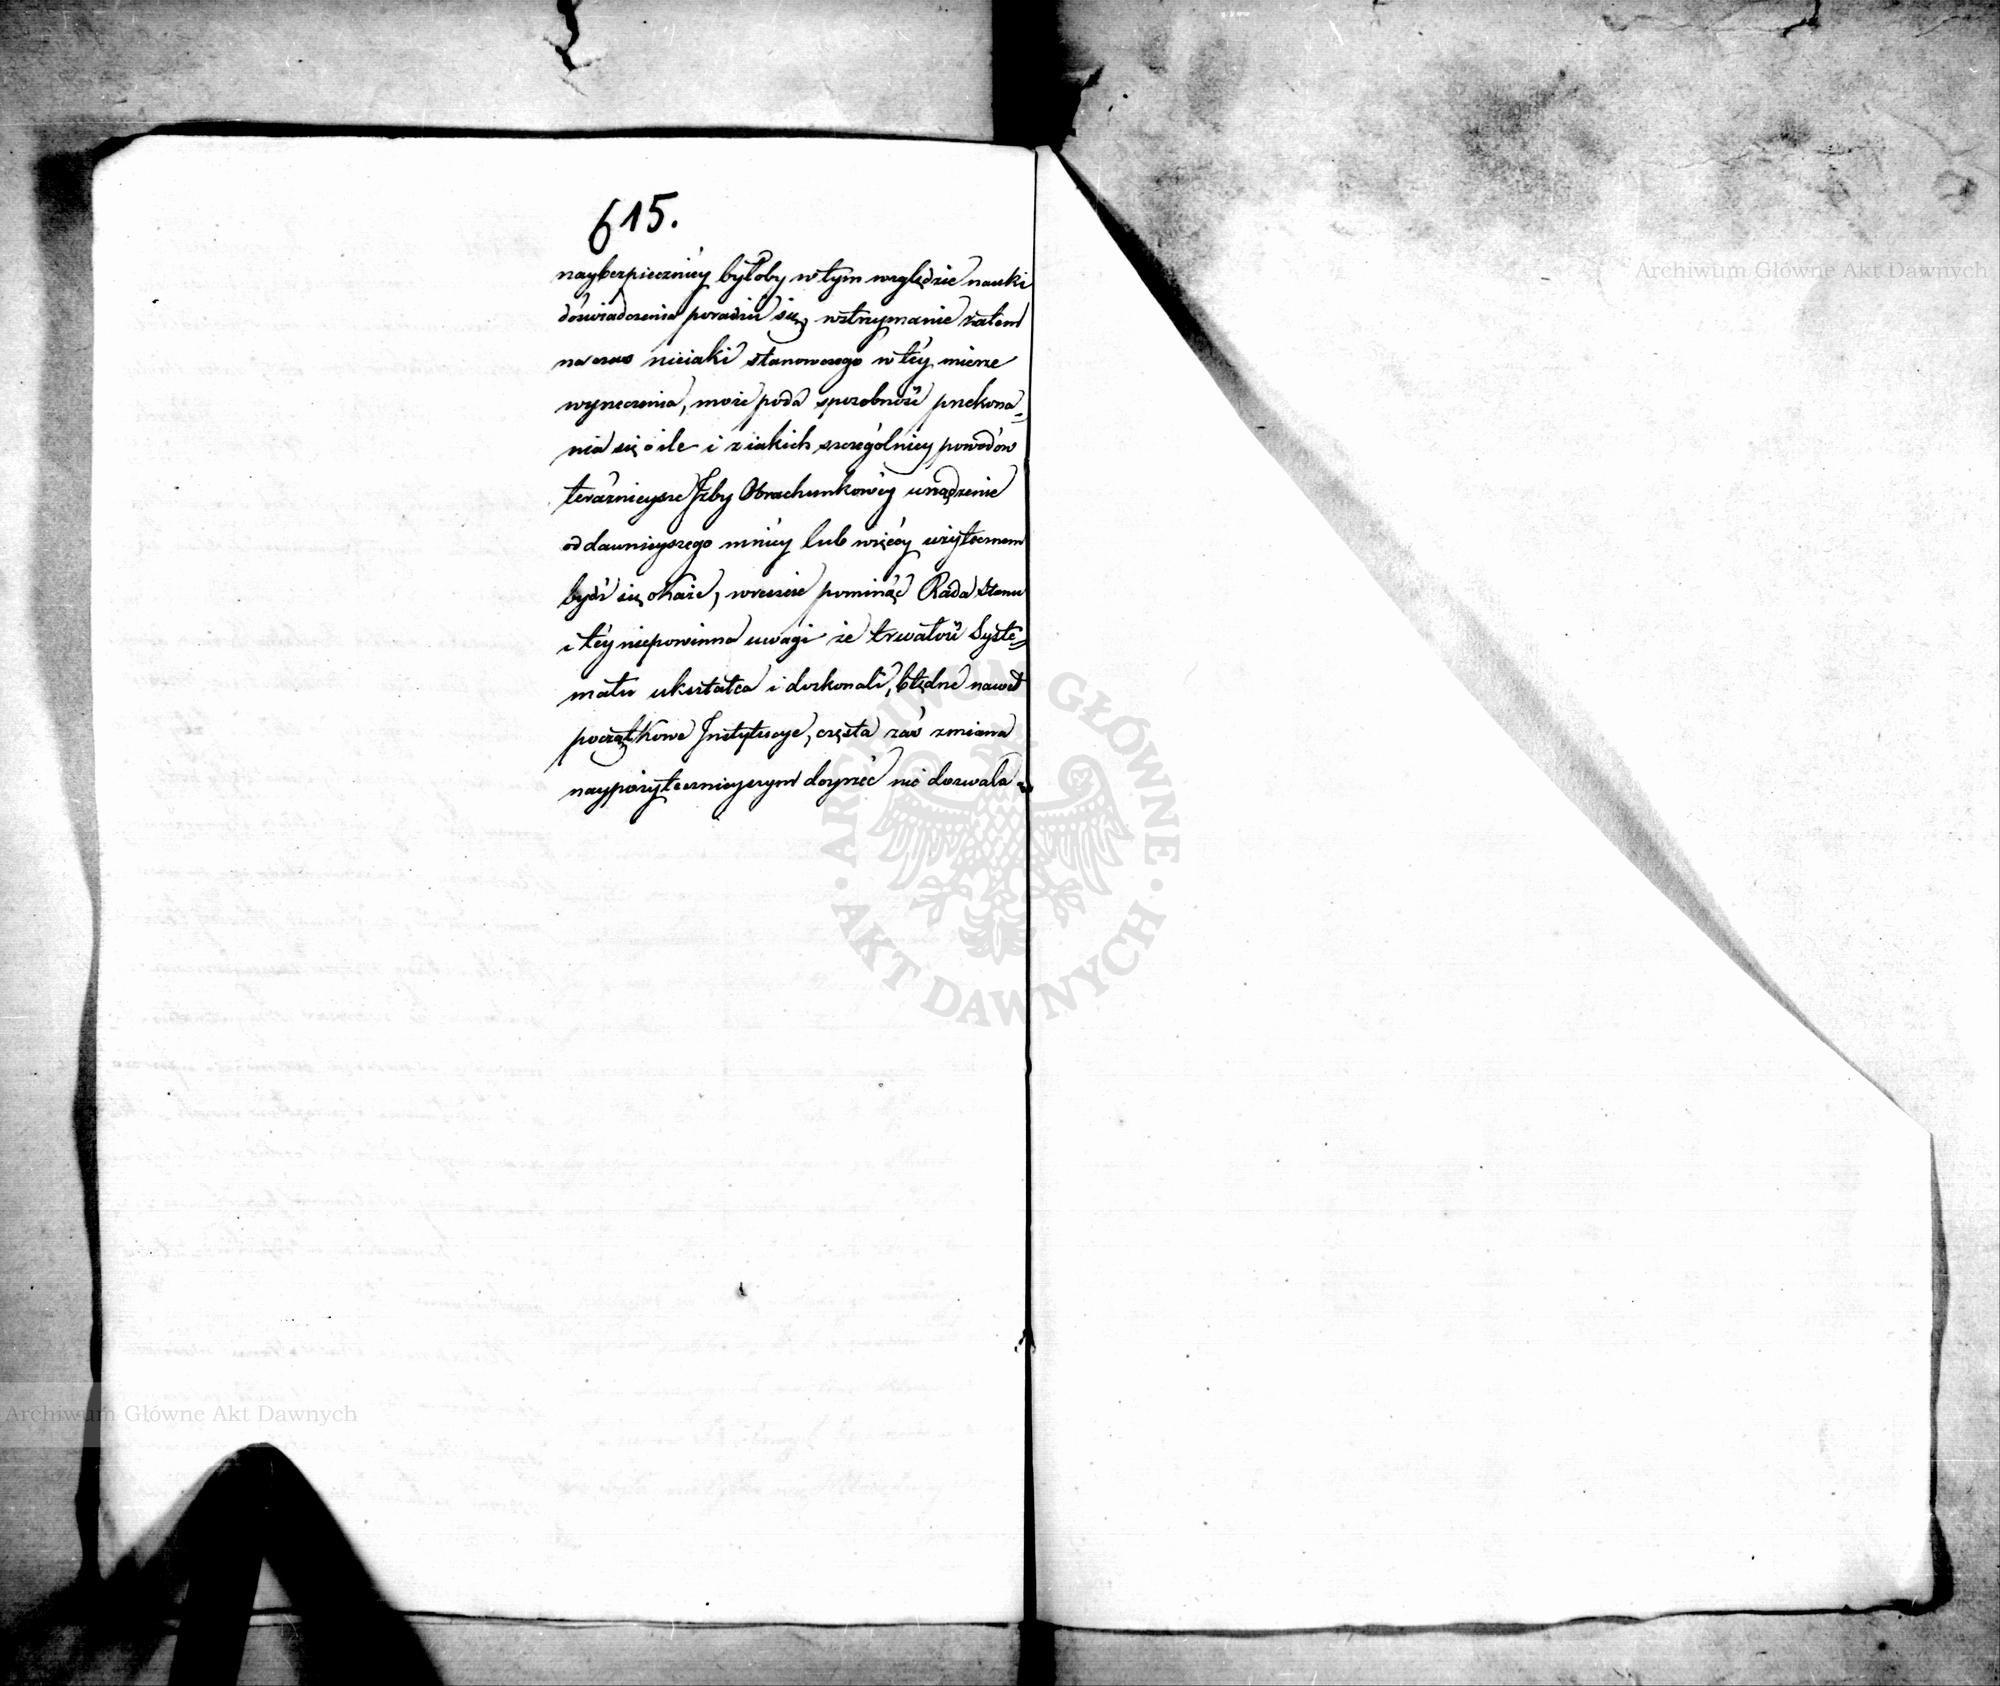 615.
naybezpieczniey byłoby w tym względzie nauki
doświadczenia poradzić się, wstrzymanie zatem
na czas nieiaki stanowczego w tey mierze
wyrzeczenia, może poda sposobność przekona-
nia się o ile i z iakich szczególniey powodów
teraźnieysze Izby Obrachunkowey urządzenie
od dawnieyszego mniey lub więcey użytecznem
bydź się okaże, wreszcie pominąć Rada Stanu
i tey niepowinna uwagi że trwałość Syste-
matu ukształca i doskonali, błędne nawet
początkowe Instytucye, częsta zaś zmiana
naypożytecznieyszym doyrzeć nie dozwala
ARCHIWUM GŁÓWNE
AKT DAWNYCH
Archiwum Główne Akt Dawnych
Archiwum Główne Akt Dawnych